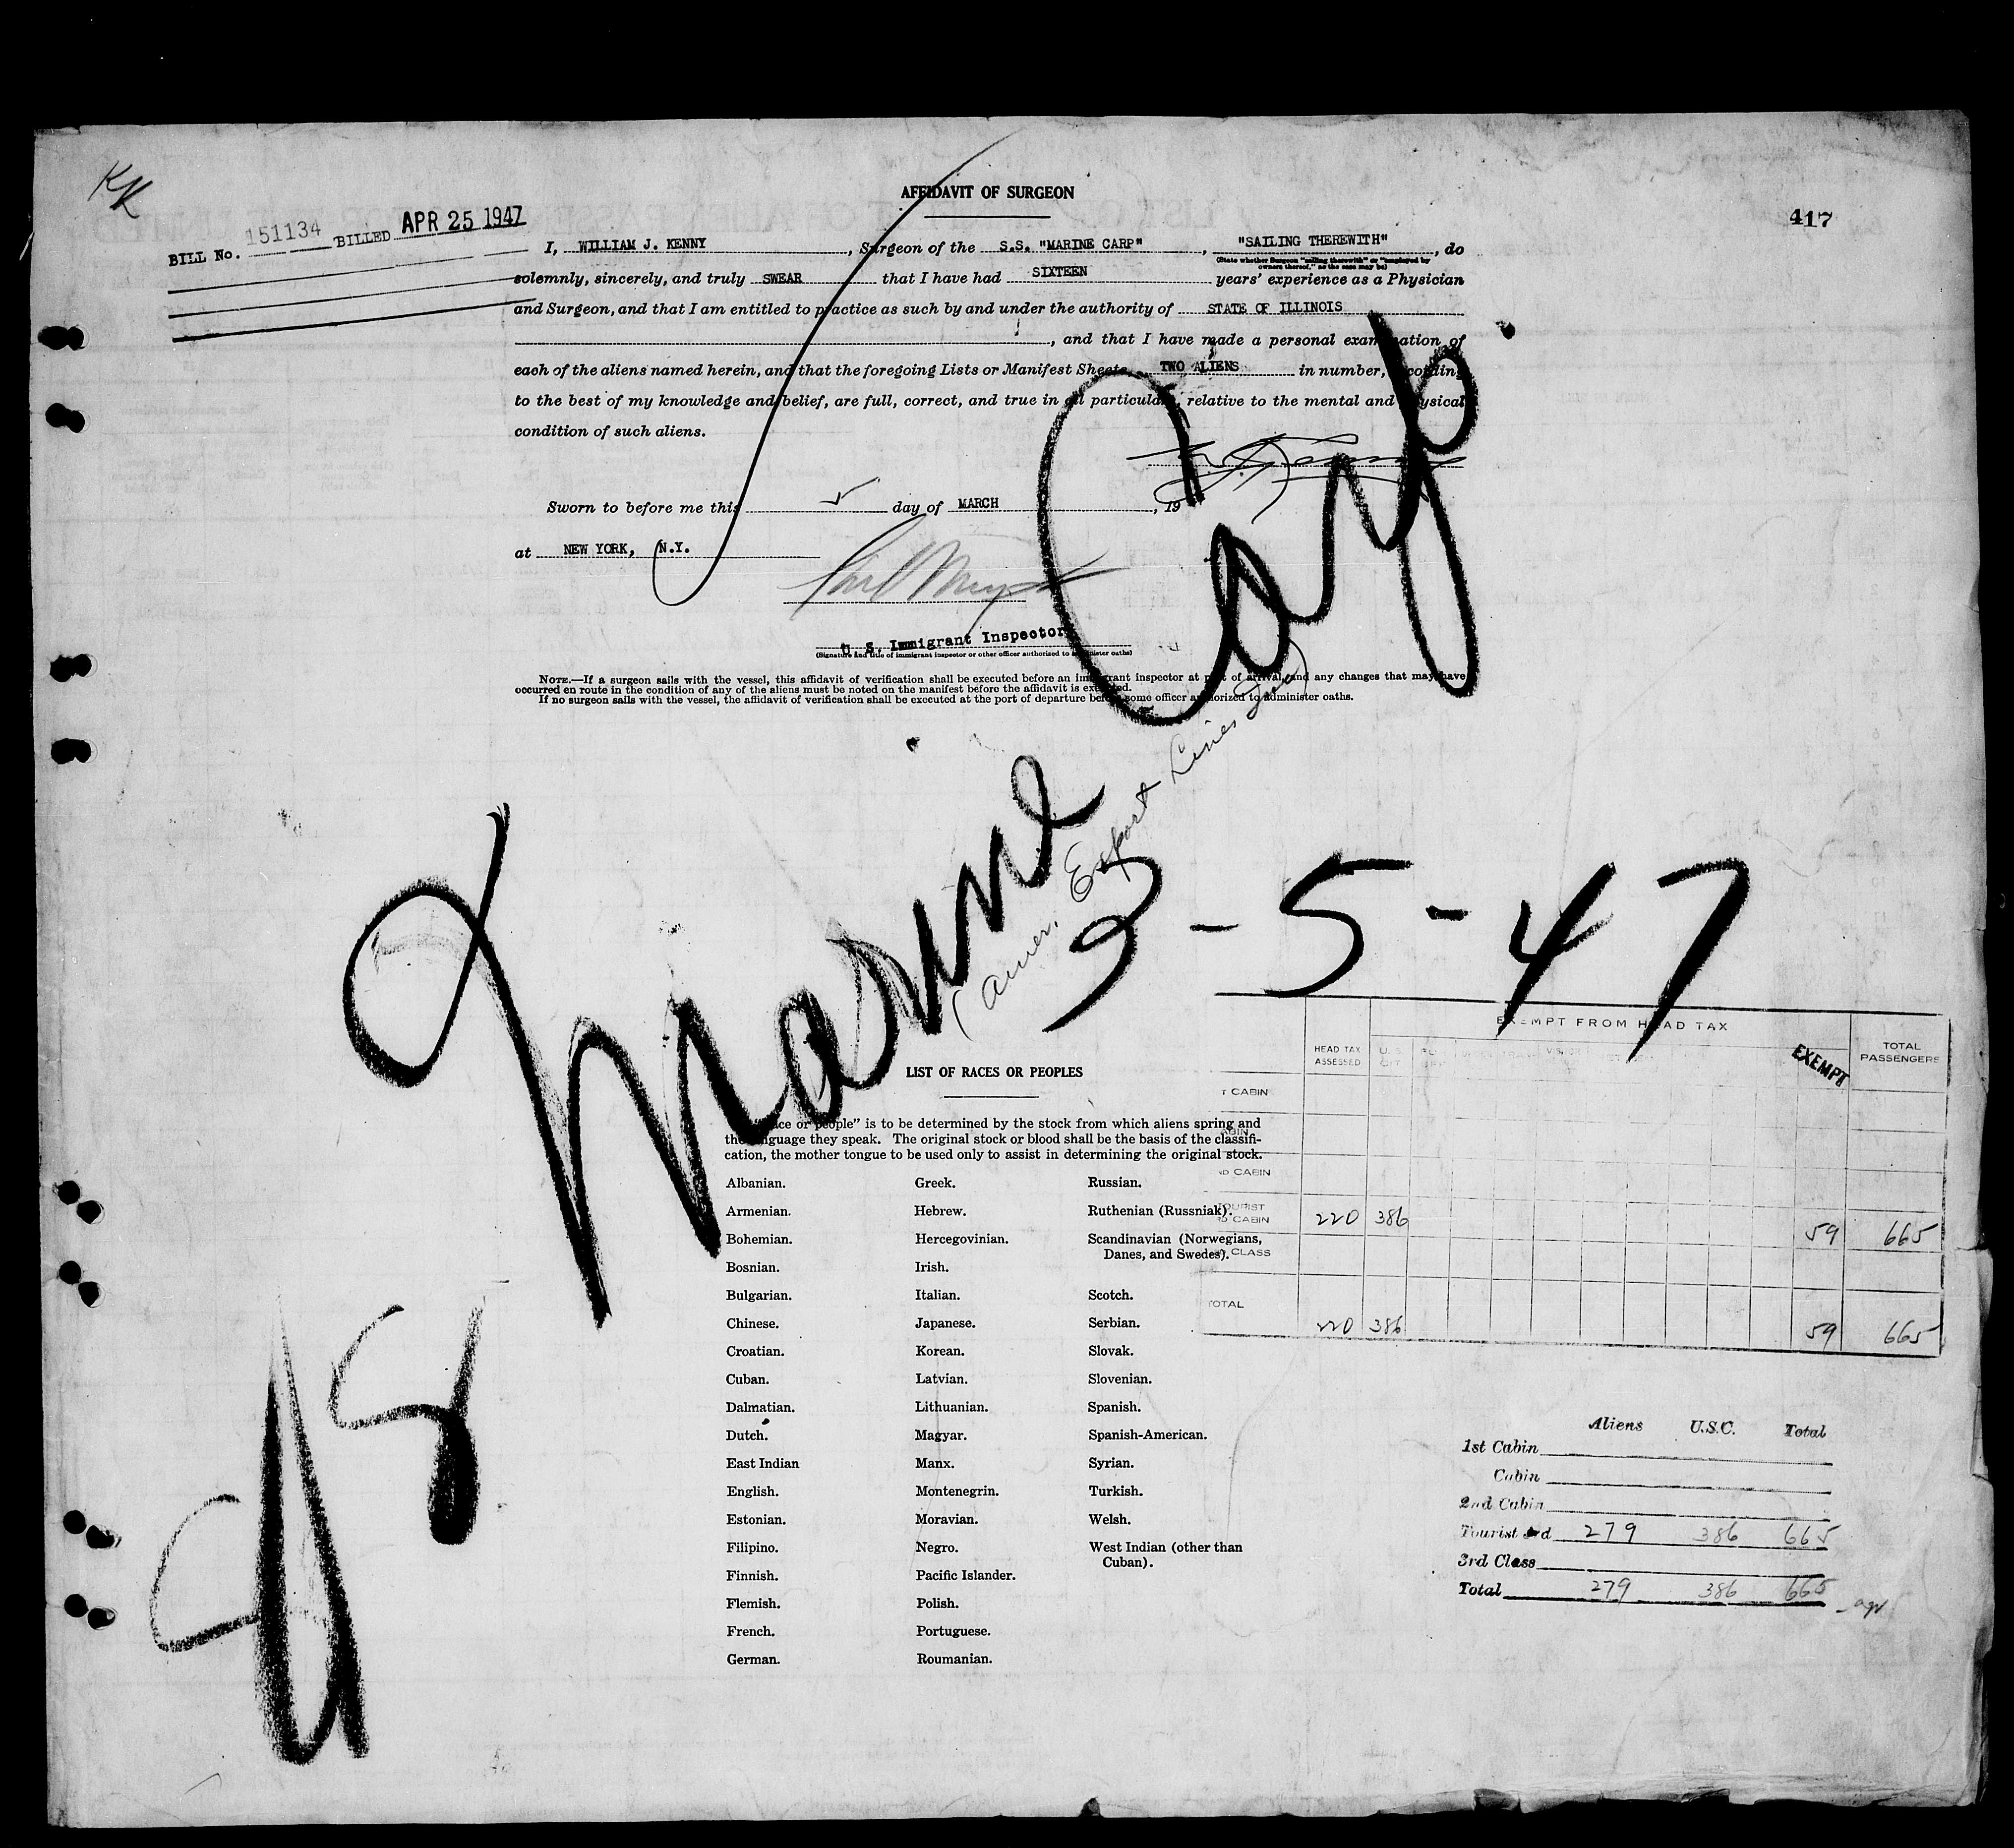 KK
AFFIDAVIT OF SURGEON
417
BILL No. 151134 BILLED APR 25 1947
I, WILLIAM J. KENNY, Surgeon of the S.S. "MARINE CARP", "SAILING THEREWITH", do
(State whether Surgeon "sailing therewith" or "employed by owners thereof," as the case may be)
solemnly, sincerely, and truly SWEAR that I have had SIXTEEN years' experience as a Physician
and Surgeon, and that I am entitled to practice as such by and under the authority of STATE OF ILLINOIS
, and that I have made a personal examination of
each of the aliens named herein, and that the foregoing Lists or Manifest Sheets TWO ALIENS in number, according
to the best of my knowledge and belief, are full, correct, and true in all particulars, relative to the mental and physical
condition of such aliens.
Sworn to before me this day of MARCH, 19
at NEW YORK, N.Y.
U. S. Immigrant Inspector
(Signature and title of immigrant inspector or other officer authorized to administer oaths)
NOTE.—If a surgeon sails with the vessel, this affidavit of verification shall be executed before an immigrant inspector at port of arrival, and any changes that may have
occurred en route in the condition of any of the aliens must be noted on the manifest before the affidavit is executed.
If no surgeon sails with the vessel, the affidavit of verification shall be executed at the port of departure before some officer authorized to administer oaths.
Marine Carp
(Amer. Export Lines Inc)
3-5-47
EXEMPT FROM HEAD TAX
HEAD TAX ASSESSED
U.S. CIT
EXEMPT
TOTAL PASSENGERS
T CABIN
CABIN
ND CABIN
TOURIST
3D CABIN 220 386 59 665
CLASS
TOTAL 220 386 59 665
LIST OF RACES OR PEOPLES
"Race or people" is to be determined by the stock from which aliens spring and
the language they speak. The original stock or blood shall be the basis of the classifi-
cation, the mother tongue to be used only to assist in determining the original stock.
Albanian.
Armenian.
Bohemian.
Bosnian.
Bulgarian.
Chinese.
Croatian.
Cuban.
Dalmatian.
Dutch.
East Indian
English.
Estonian.
Filipino.
Finnish.
Flemish.
French.
German.
Greek.
Hebrew.
Hercegovinian.
Irish.
Italian.
Japanese.
Korean.
Latvian.
Lithuanian.
Magyar.
Manx.
Montenegrin.
Moravian.
Negro.
Pacific Islander.
Polish.
Portuguese.
Roumanian.
Russian.
Ruthenian (Russniak).
Scandinavian (Norwegians,
Danes, and Swedes).
Scotch.
Serbian.
Slovak.
Slovenian.
Spanish.
Spanish-American.
Syrian.
Turkish.
Welsh.
West Indian (other than
Cuban).
Aliens U.S.C. Total
1st Cabin
Cabin
2nd Cabin
Tourist 3rd 279 386 665
3rd Class
Total 279 386 665